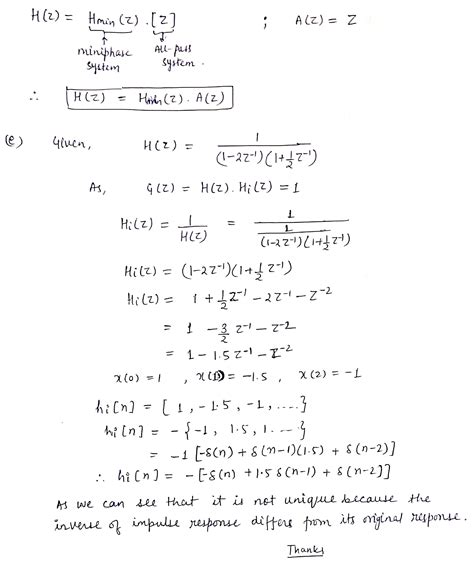 H(z) = Hmin(z) . [z] ; A(z) = z
miniphase system All-pass system.
∴ H(z) = Hmin(z) . A(z)
(e) Given, H(z) = 1 / (1-2z⁻¹)(1+1/2 z⁻¹)
As, G(z) = H(z). Hi(z) = 1
Hi(z) = 1 / H(z) = 1 / (1 / (1-2z⁻¹)(1+1/2 z⁻¹))
Hi(z) = (1-2z⁻¹)(1+1/2 z⁻¹)
Hi(z) = 1 + 1/2 z⁻¹ - 2z⁻¹ - z⁻²
= 1 - 3/2 z⁻¹ - z⁻²
= 1 - 1.5 z⁻¹ - z⁻²
x(0) = 1 , x(1) = -1.5 , x(2) = -1
hi[n] = [ 1, -1.5, -1, ....}
hi[n] = - {-1, 1.5, 1. ...}
= -1 [-δ(n) + δ(n-1)(1.5) + δ(n-2)]
∴ hi[n] = - [-δ(n) + 1.5 δ(n-1) + δ(n-2)]
As we can see that it is not unique because the
inverse of impulse response differs from its original response.
Thanks